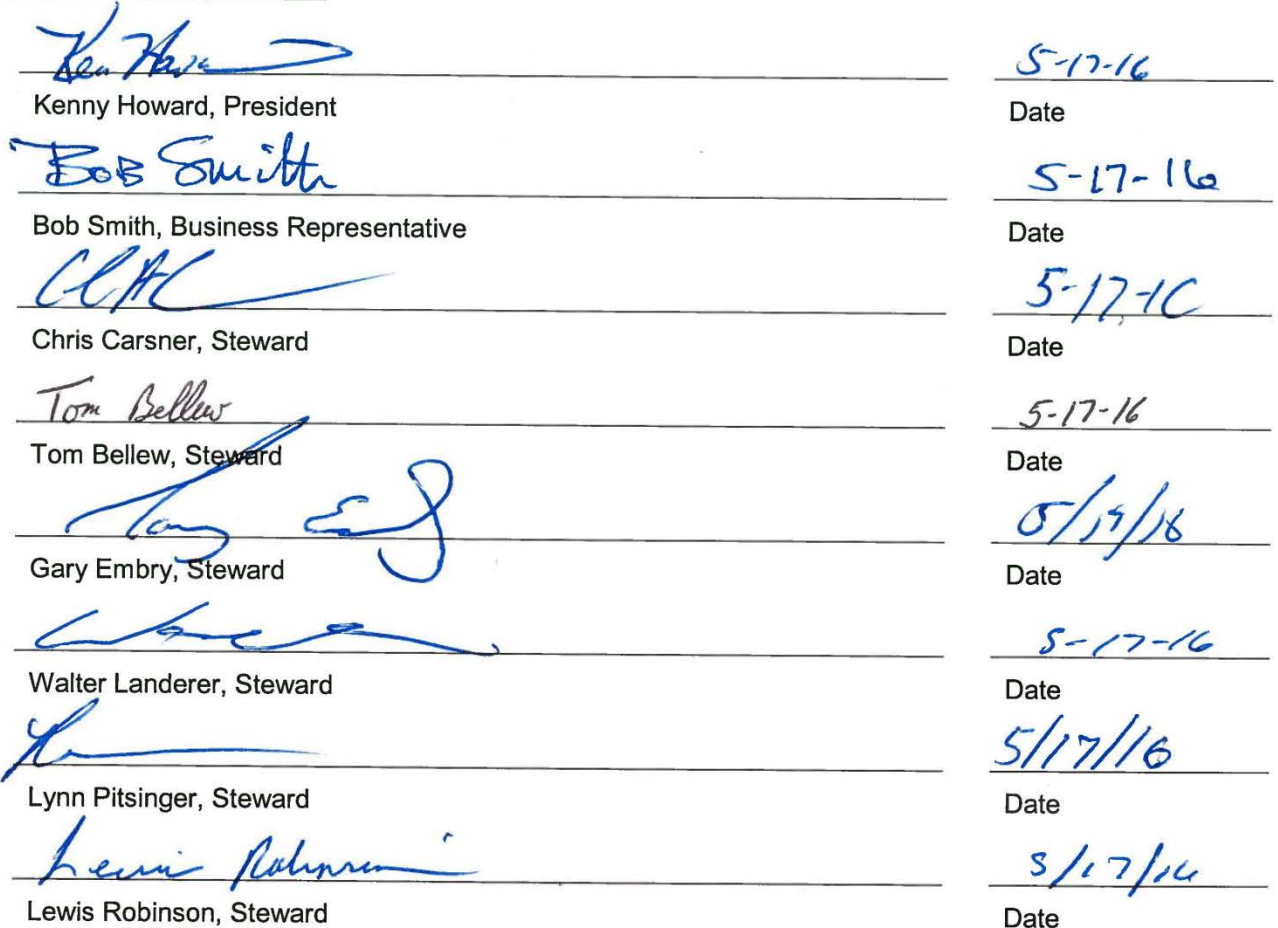 Ken Howard 5-17-16
Kenny Howard, President Date
Bob Smith 5-17-16
Bob Smith, Business Representative Date
5-17-16
Chris Carsner, Steward Date
Tom Bellew 5-17-16
Tom Bellew, Steward Date
Gary Embry, Steward Date
5-17-16
Walter Landerer, Steward Date
5/17/16
Lynn Pitsinger, Steward Date
Lewis Robinson 5/17/16
Lewis Robinson, Steward Date